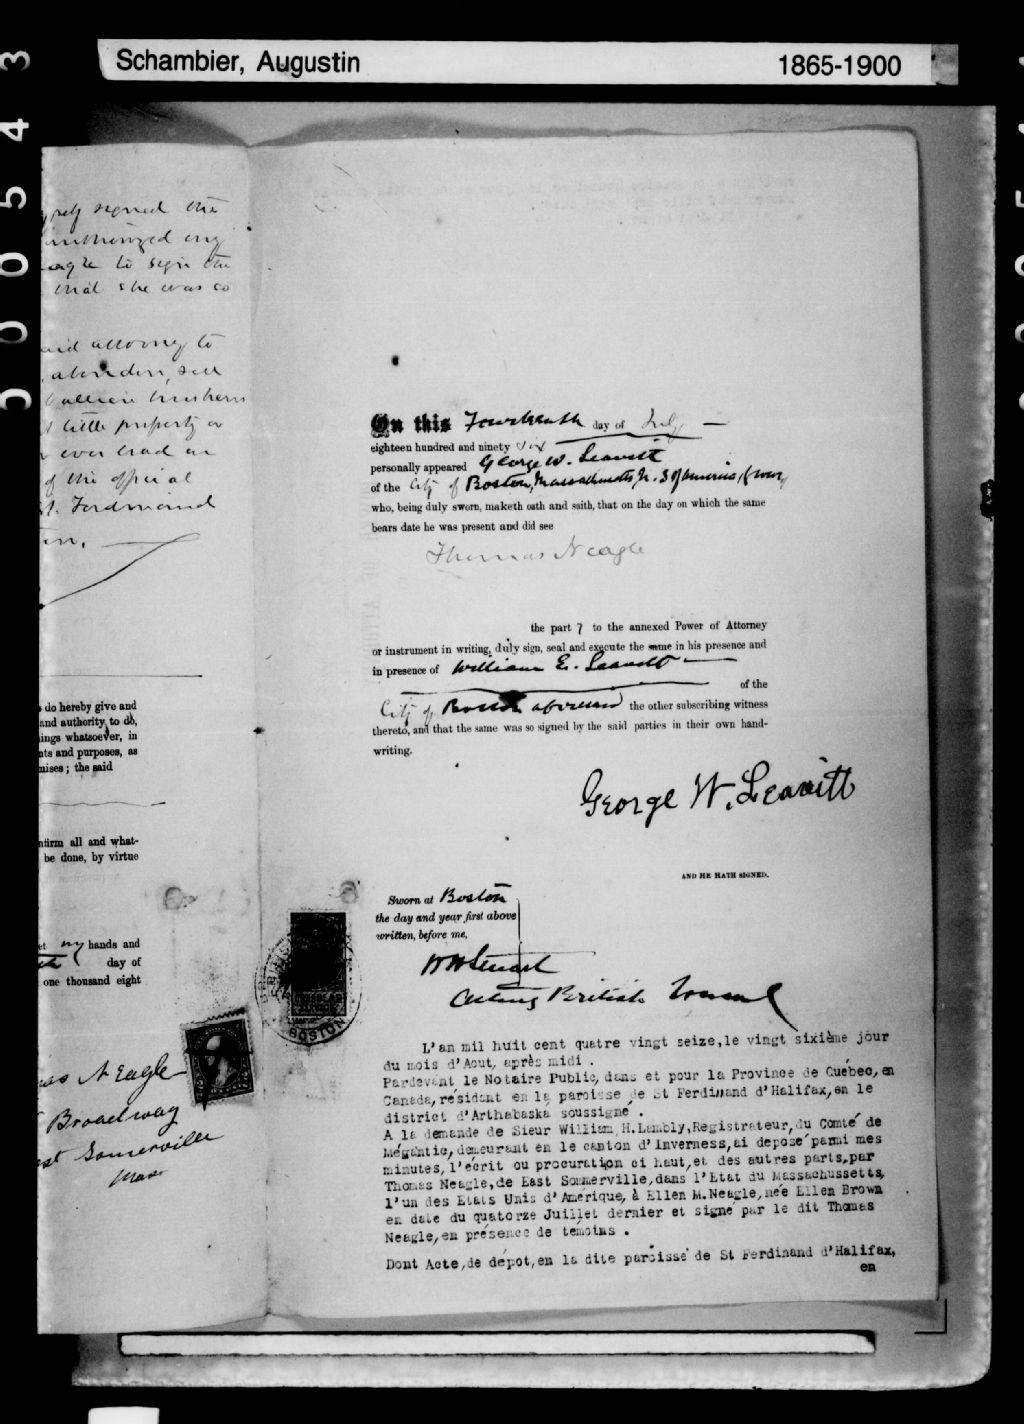 Schambier, Augustin
1865-1900
signed the
authorized my
to sign the
that she was so
said attorney to
abandon, sell
little property or
ever had in
of the official
St. Ferdinand
do hereby give and
and authority to do,
ings whatsoever, in
nts and purposes, as
mises; the said
nfirm all and what-
be done, by virtue
et my hands and
day of
one thousand eight
as Neagle
Broadway
st Somerville
Mass
On this Fourteenth day of July
eighteen hundred and ninety six
personally appeared George W. Leavitt
of the City of Boston, Massachusetts, U. S of America,
who, being duly sworn, maketh oath and saith, that on the day on which the same
bears date he was present and did see
Thomas Neagle
the part y to the annexed Power of Attorney
or instrument in writing, duly sign, seal and execute the same in his presence and
in presence of William E. Leavitt
of the
City of Boston aforesaid the other subscribing witness
thereto, and that the same was so signed by the said parties in their own hand-
writing.
George W. Leavitt
AND HE HATH SIGNED.
Sworn at Boston
the day and year first above
written, before me,
Stuart
Acting British Consul
BOSTON
L'an mil huit cent quatre vingt seize, le vingt sixième jour
du mois d'Aout, après midi .
Pardevant le Notaire Public, dans et pour la Province de Québec, en
Canada, résidant en la paroisse de St Ferdinand d'Halifax, en le
district d'Arthabaska soussigné .
A la demande de Sieur William H. Lambly, Registrateur, du Comté de
Mégantic, demeurant en le canton d'Inverness, ai deposé parmi mes
minutes, l'écrit ou procuration ci haut, et des autres parts, par
Thomas Neagle, de East Sommerville, dans l'Etat du Massachussetts,
l'un des Etats Unis d'Amérique, à Ellen M. Neagle, née Ellen Brown
en date du quatorze Juillet dernier et signé par le dit Thomas
Neagle, en présence de témoins .
Dont Acte, de dépot, en la dite paroisse de St Ferdinand d'Halifax,
en